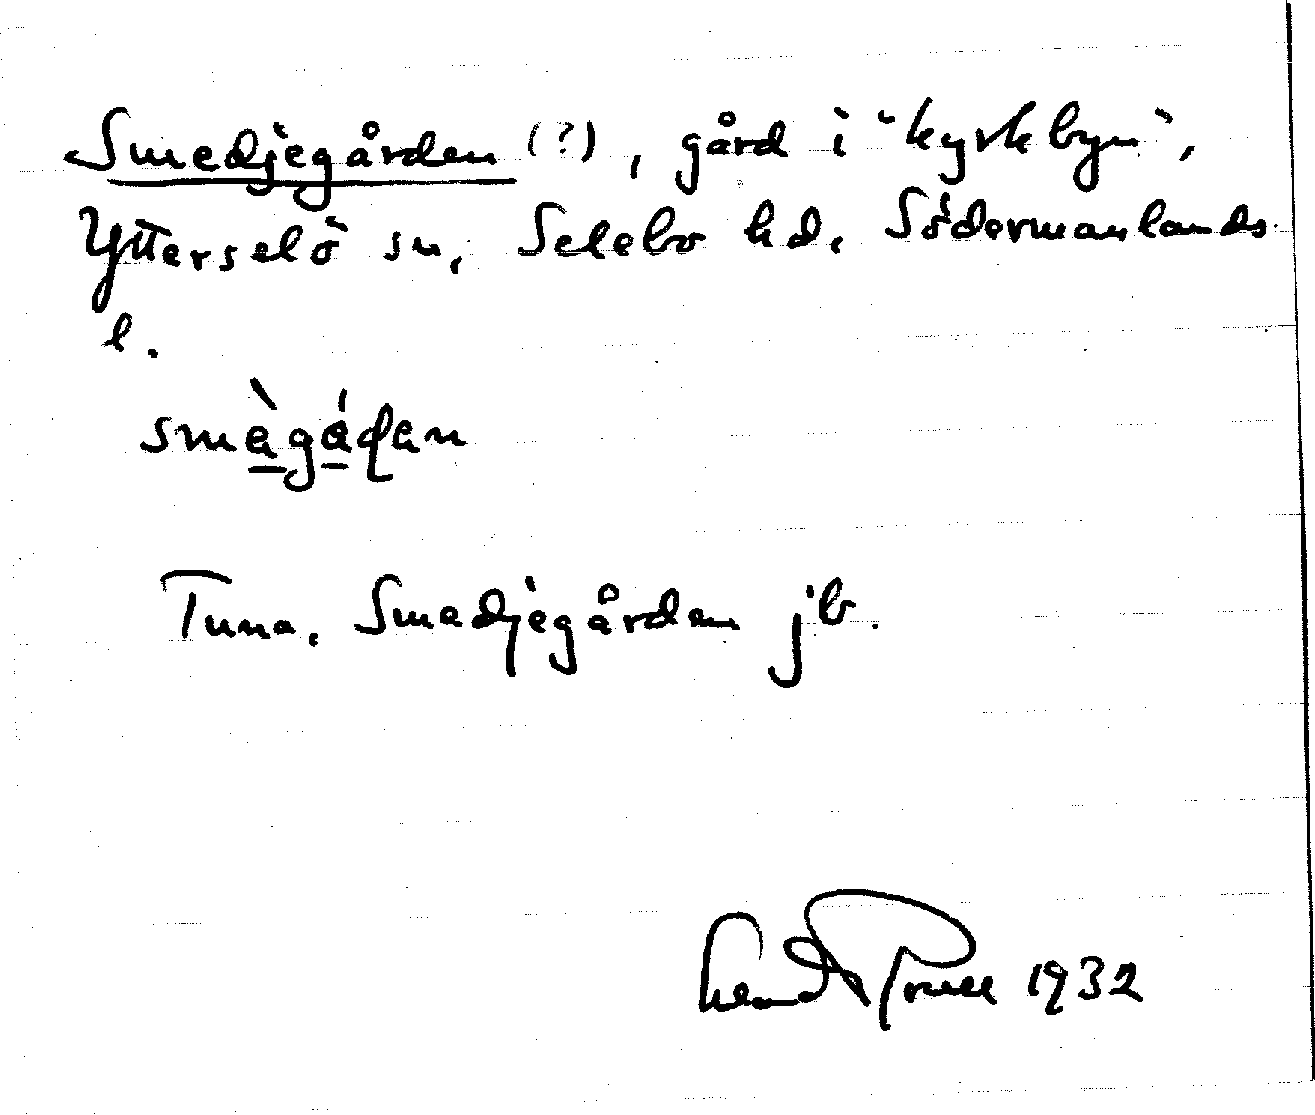 Smedjegården (?), gård i "kyrkbyn",
Ytterselö sn, Selebo hd, Södermanlands
l.
Tuna, Smedjegården jb.
1932